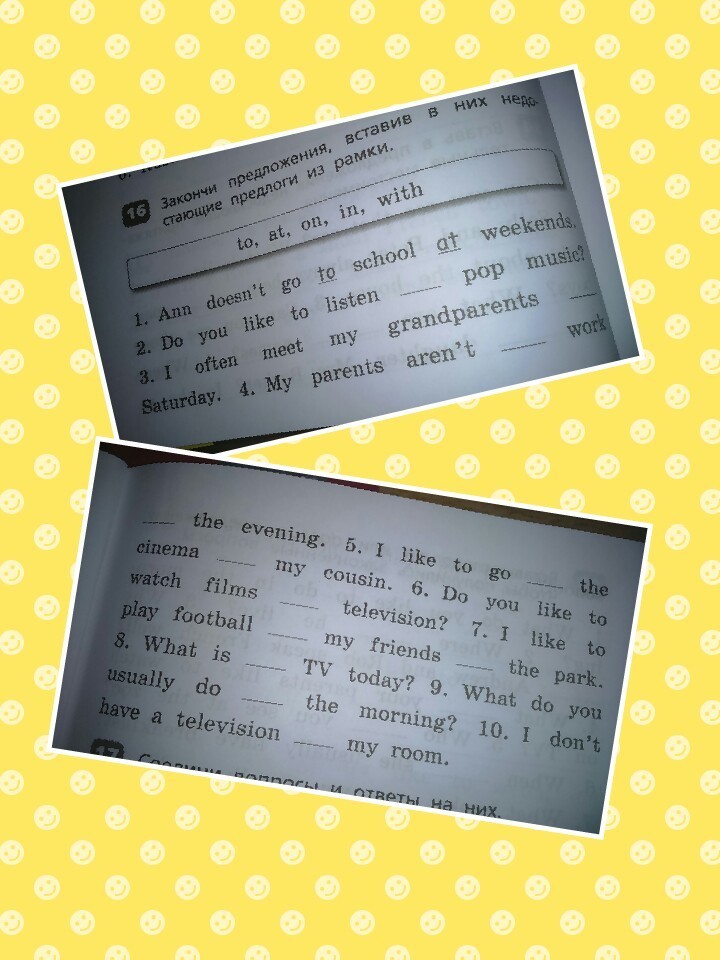 16 Закончи предложения, вставив в них недо-
стающие предлоги из рамки.
to, at, on, in, with
1. Ann doesn't go to school at weekends.
2. Do you like to listen ____ pop music?
3. I often meet my grandparents ____
Saturday. 4. My parents aren't ____ work
____ the evening. 5. I like to go ____ the
cinema ____ my cousin. 6. Do you like to
watch films ____ television? 7. I like to
play football ____ my friends ____ the park.
8. What is ____ TV today? 9. What do you
usually do ____ the morning? 10. I don't
have a television ____ my room.
17 Соедини вопросы и ответы на них.